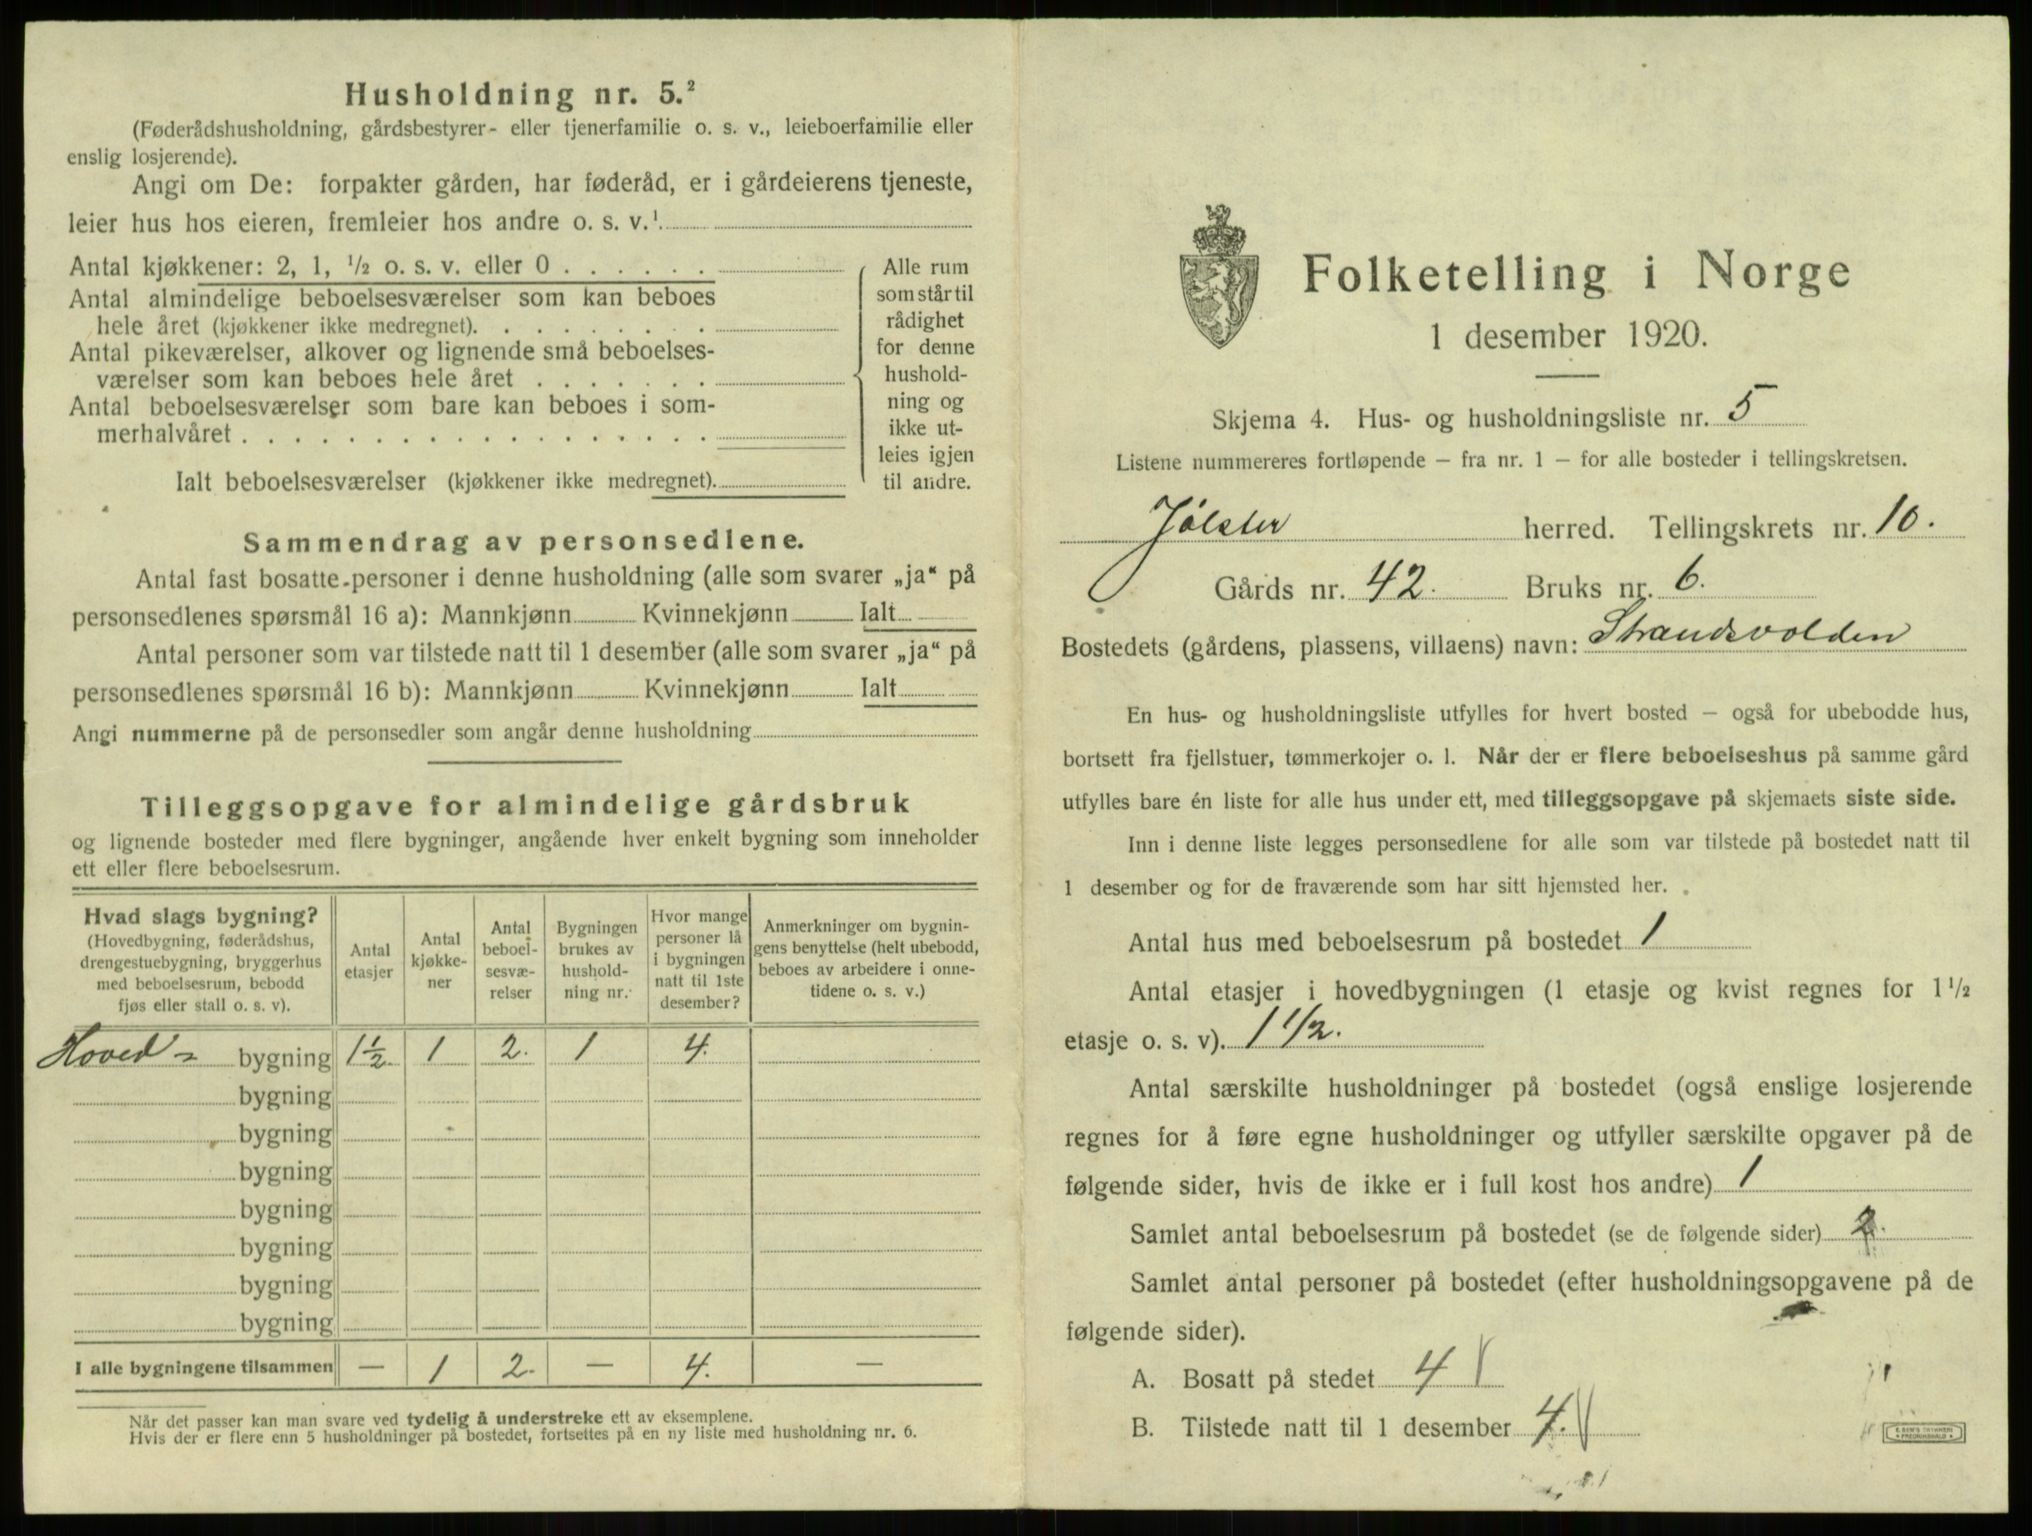 Husholdning nr. 5.²
(Føderådshusholdning, gårdsbestyrer- eller tjenerfamilie o. s. v., leieboerfamilie eller
enslig losjerende).
Angi om De: forpakter gården, har føderåd, er i gårdeierens tjeneste,
leier hus hos eieren, fremleier hos andre o. s. v.¹
Antal kjøkkener: 2, 1, ½ o. s. v. eller 0 . . . . . .
Antal almindelige beboelsesværelser som kan beboes
hele året (kjøkkener ikke medregnet). . . . . . . . .
Antal pikeværelser, alkover og lignende små beboelses-
værelser som kan beboes hele året . . . . . . .
Antal beboelsesværelser som bare kan beboes i som-
merhalvåret . . . . . . . . . . . . . . . . . .
Ialt beboelsesværelser (kjøkkener ikke medregnet).
Alle rum
som står til
rådighet
for denne
hushold-
ning og
ikke ut-
leies igjen
til andre.
Sammendrag av personsedlene.
Antal fast bosatte personer i denne husholdning (alle som svarer „ja“ på
personsedlenes spørsmål 16 a): Mannkjønn Kvinnekjønn Ialt
Antal personer som var tilstede natt til 1 desember (alle som svarer „ja“ på
personsedlenes spørsmål 16 b): Mannkjønn Kvinnekjønn Ialt
Angi nummerne på de personsedler som angår denne husholdning
Tilleggsopgave for almindelige gårdsbruk
og lignende bosteder med flere bygninger, angående hver enkelt bygning som inneholder
ett eller flere beboelsesrum.
Hvad slags bygning?
(Hovedbygning, føderådshus,
drengestuebygning, bryggerhus
med beboelsesrum, bebodd
fjøs eller stall o. s. v).
Antal
etasjer
Antal
kjøkke-
ner
Antal
beboel-
sesvæ-
relser
Bygningen
brukes av
hushold-
ning nr.
Hvor mange
personer lå
i bygningen
natt til 1ste
desember?
Anmerkninger om bygnin-
gens benyttelse (helt ubebodd,
beboes av arbeidere i onne-
tidene o. s. v.)
Hoved- bygning 1½ 1 2. 1 4.
bygning
bygning
bygning
bygning
bygning
bygning
bygning
I alle bygningene tilsammen — 1 2. — 4. —
Når det passer kan man svare ved tydelig å understreke ett av eksemplene.
Hvis der er flere enn 5 husholdninger på bostedet, fortsettes på en ny liste med husholdning nr. 6.
Folketelling i Norge
1 desember 1920.
Skjema 4. Hus- og husholdningsliste nr. 5
Listene nummereres fortløpende – fra nr. 1 – for alle bosteder i tellingskretsen.
Jølster herred. Tellingskrets nr. 10.
Gårds nr. 42. Bruks nr. 6.
Bostedets (gårdens, plassens, villaens) navn: Strandsvolden
En hus- og husholdningsliste utfylles for hvert bosted – også for ubebodde hus,
bortsett fra fjellstuer, tømmerkojer o. l. Når der er flere beboelseshus på samme gård
utfylles bare én liste for alle hus under ett, med tilleggsopgave på skjemaets siste side.
Inn i denne liste legges personsedlene for alle som var tilstede på bostedet natt til
1 desember og for de fraværende som har sitt hjemsted her.
Antal hus med beboelsesrum på bostedet 1
Antal etasjer i hovedbygningen (1 etasje og kvist regnes for 1½
etasje o. s. v). 1 1/2.
Antal særskilte husholdninger på bostedet (også enslige losjerende
regnes for å føre egne husholdninger og utfyller særskilte opgaver på de
følgende sider, hvis de ikke er i full kost hos andre) 1
Samlet antal beboelsesrum på bostedet (se de følgende sider) 2.
Samlet antal personer på bostedet (efter husholdningsopgavene på de
følgende sider).
A. Bosatt på stedet 4
B. Tilstede natt til 1 desember 4.